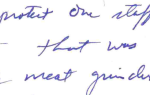 protect one staff
that was
meat grinder